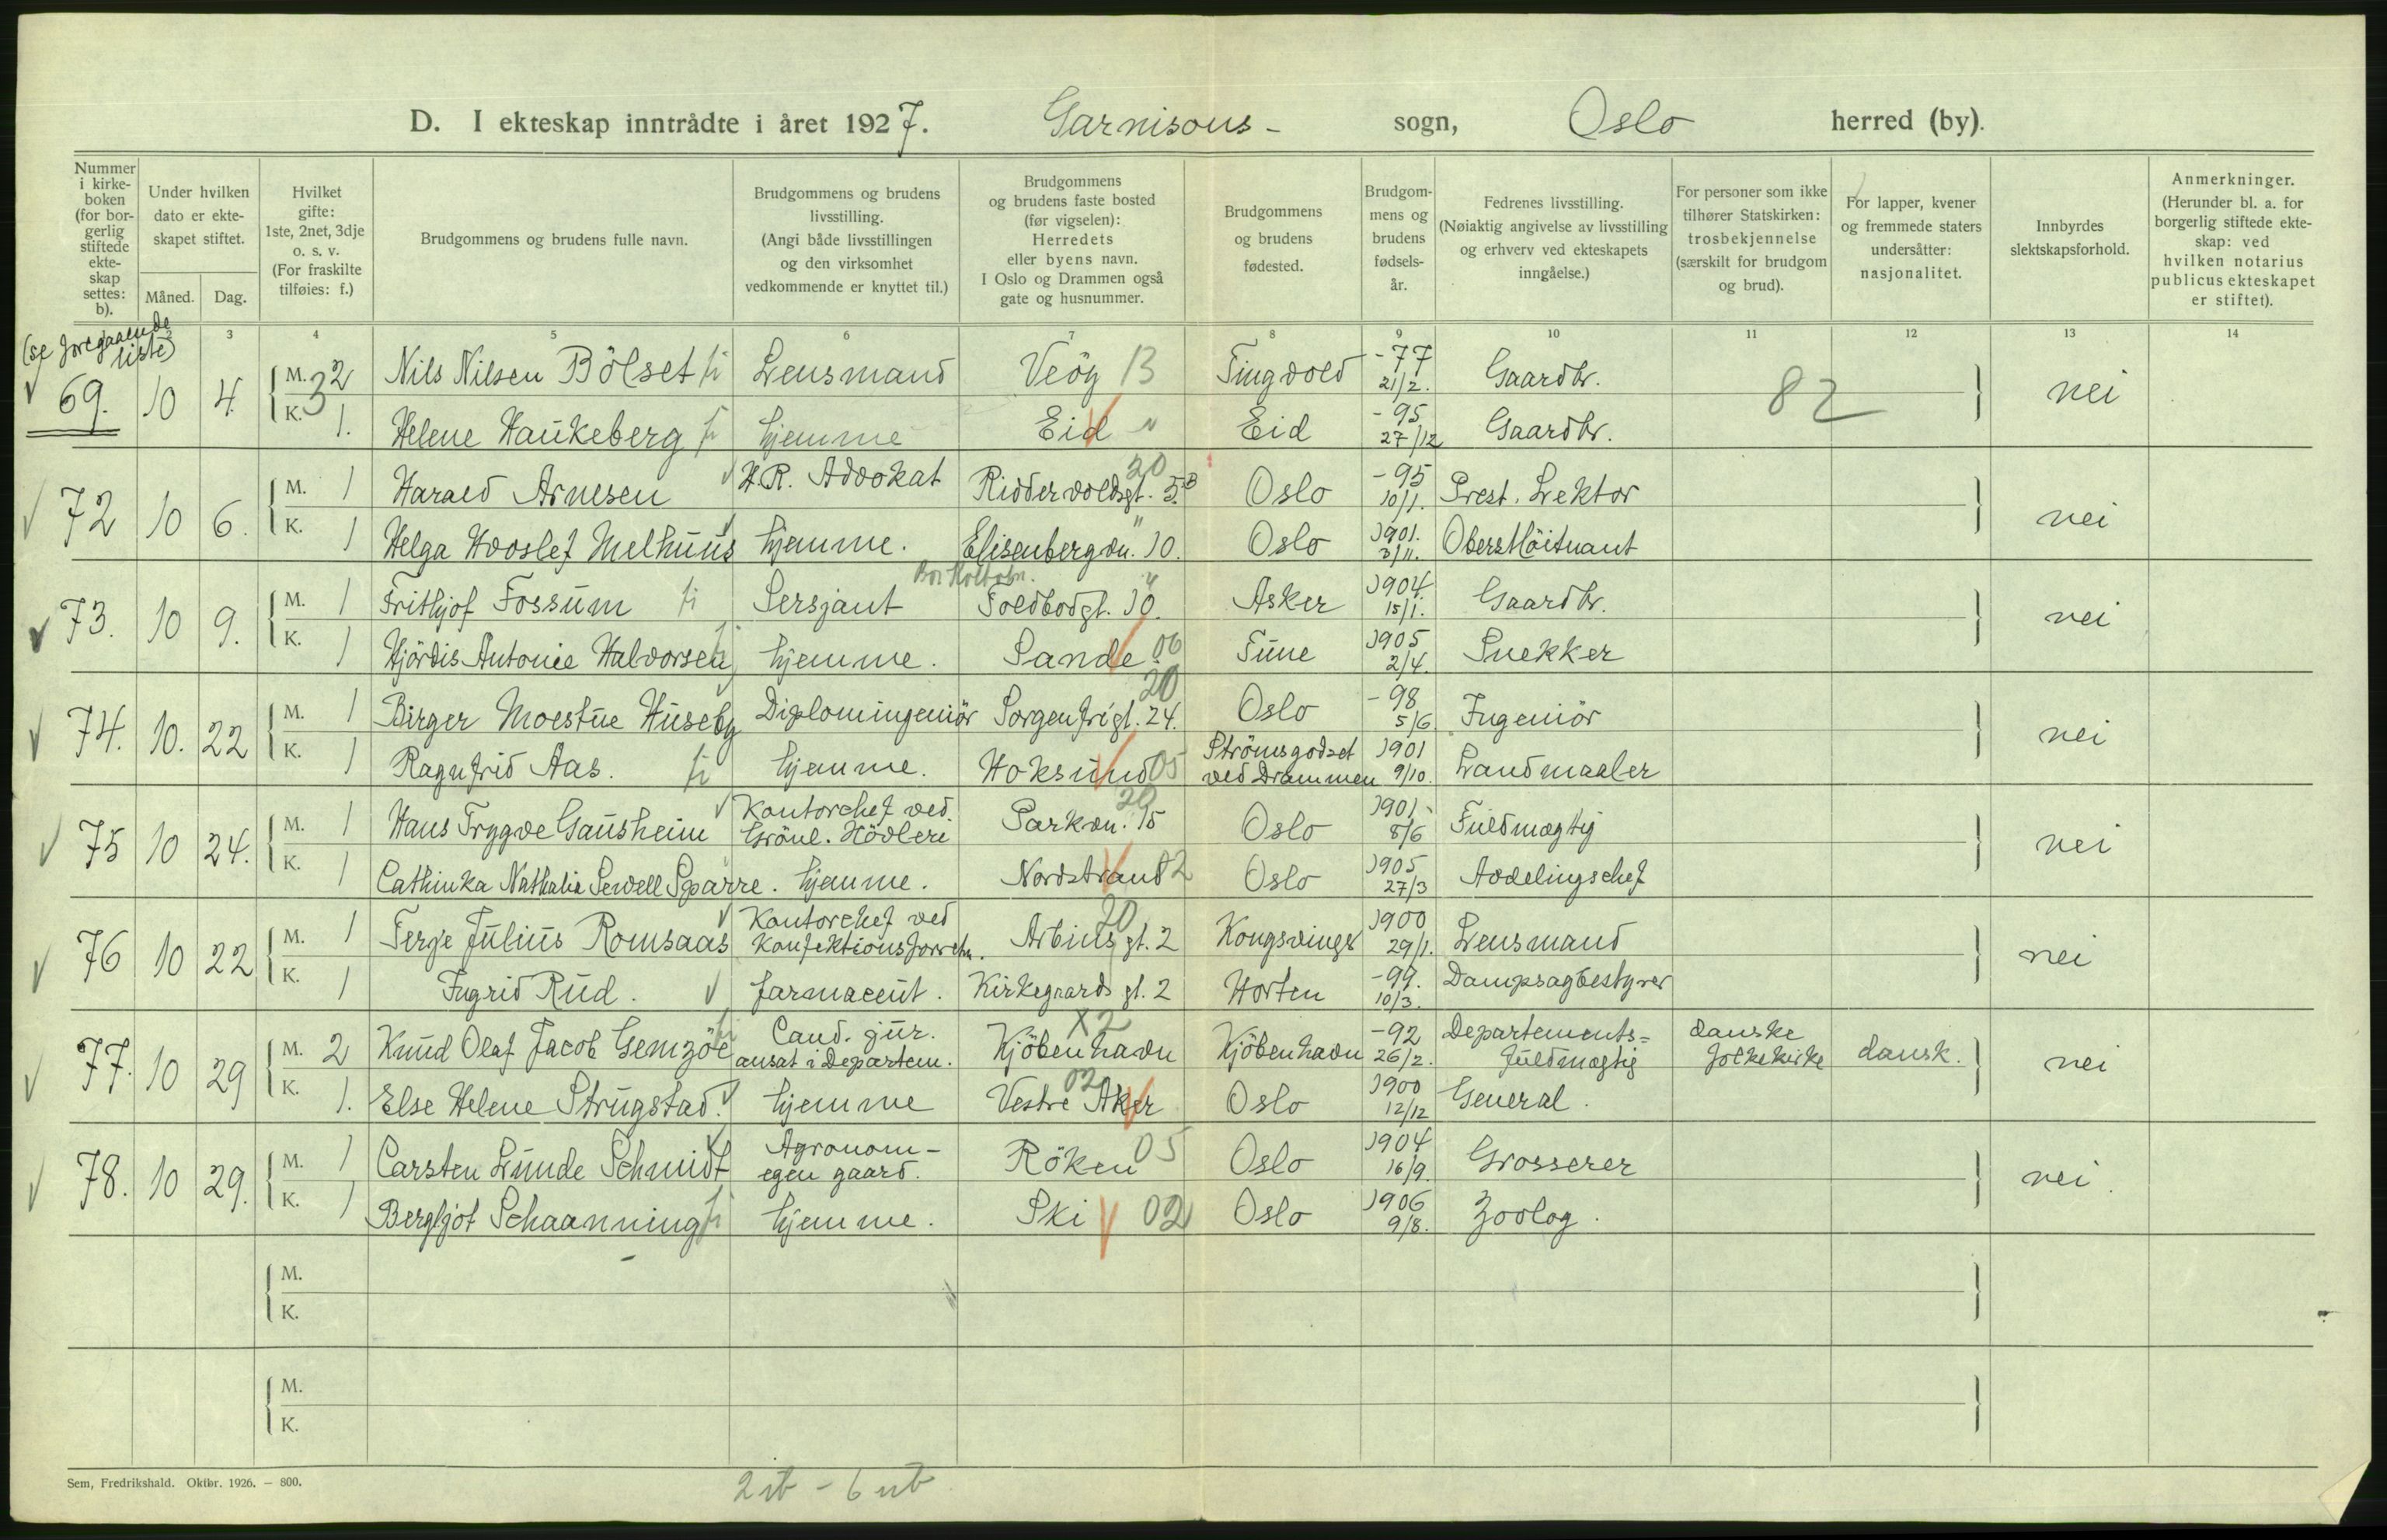 D. I ekteskap inntrådte i året 1927. Garnisons- sogn, Oslo herred (by).
Nummer i kirke-boken (for bor-gerlig stiftede ekte-skap settes: b).
Under hvilken dato er ekte-skapet stiftet.
Måned. Dag.
Hvilket gifte: 1ste, 2net, 3dje o. s. v. (For fraskilte tilføies: f.)
Brudgommens og brudens fulle navn.
Brudgommens og brudens livsstilling. (Angi både livsstillingen og den virksomhet vedkommende er knyttet til.)
Brudgommens og brudens faste bosted (før vigselen): Herredets eller byens navn. I Oslo og Drammen også gate og husnummer.
Brudgommens og brudens fødested.
Brudgom-mens og brudens fødsels-år.
Fedrenes livsstilling. (Nøiaktig angivelse av livsstilling og erhverv ved ekteskapets inngåelse.)
For personer som ikke tilhører Statskirken: trosbekjennelse (særskilt for brudgom og brud).
For lapper, kvener og fremmede staters undersåtter: nasjonalitet.
Innbyrdes slektskapsforhold.
Anmerkninger. (Herunder bl. a. for borgerlig stiftede ekte-skap: ved hvilken notarius publicus ekteskapet er stiftet).
2 3 4 5 6 7 8 9 10 11 12 13 14
(se foregaaende liste)
69. 10 4. M. 2 Nils Nilsen Bölset Lensmand Veöy 13 Tingvold -77 21/2. Gaardbr. 82 nei
3 K. 1. Helene Haukeberg hjemme Eid " Eid -95 27/12 Gaardbr.
72 10 6. M. 1 Harald Arnesen H.R. Advokat Riddervoldsgt. 5B 20 Oslo -95 10/1. Prest. Lektor nei
K. 1 Helga Hvoslef Melhuus hjemme. Elisenbergvn. 10. " Oslo 1901. 3/11. Oberstlöitnant
73. 10 9. M. 1 Frithjof Fossum Sersjant Toldbodgt. 10. " Asker 1904. 15/1. Gaardbr. nei
K. 1 Hjördis Antonie Halvorsen hjemme. Sande. 06 Tune 1905 2/4. Snekker
74. 10. 22 M. 1 Birger Moestue Huseby Diplomingeniör Sorgenfrigt. 24. 20 Oslo -98 5/6 Ingeniör nei
K. 1 Ragnfrid Aas. hjemme. Hoksund 05 Strömsgodset ved Drammen 1901 9/10. Landmaaler
75 10 24. M. 1 Hans Trygve Gausheim Kontorchef ved Grönl. Hövleri Parkvn. 15 20 Oslo 1901 8/6 Fuldmægtig nei
K. 1 Cathinka Nathalia Sewell Sparre. hjemme. Nordstrand 02 Oslo 1905 27/3 Avdelingschef
76 10 22 M. 1 Terje Julius Romsaas Kontorchef ved Konfektionsforretn. Arbins gt. 2 20 Kongsvinger 1900 29/1. Lensmand nei
K. 1 Ingrid Rud. farmaceut. Kirkegaards gt. 2 Horten -99. 10/3. Dampsagbestyrer
77. 10 29 M. 2 Knud Olaf Jacob Gemzöe Cand. jur. ansat i Departem. Kjöbenhavn X2 Kjöbenhavn -92 26/2. Departements-fuldmægtig danske folkekirke dansk. nei
K. 1. Else Helene Strugstad. hjemme Vestre Aker 02 Oslo 1900 12/12 General.
78. 10 29. M. 1 Carsten Lunde Schmidt Agronom - egen gaard. Röken 05 Oslo 1904 16/9. Grosserer nei.
K. 1 Bergljot Schaanning hjemme. Ski 02 Oslo 1906 9/8. Zoolog.
M.
K.
M.
K.
Sem, Fredrikshald. Oktbr. 1926. — 800.